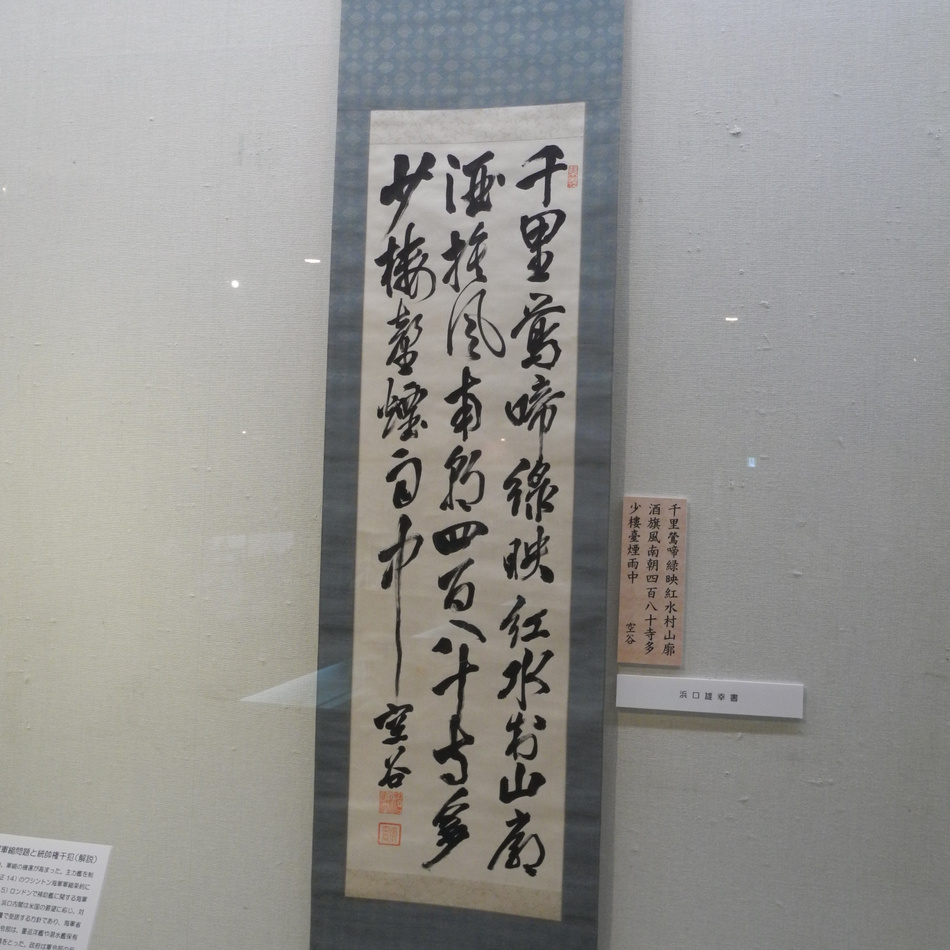 千里鶯啼綠映紅水村山廓
酒旗風南朝四百八十寺多
少樓臺煙雨中
空谷
千里鶯啼綠映紅水村山廓
酒旗風南朝四百八十寺多
少樓臺煙雨中
空谷
浜口雄幸書
軍縮問題と統帥権干犯(解説)
、軍縮の機運が高まった。主力艦を制
正14)のワシントン海軍軍縮条約に
5)ロンドンで補助艦に関する海軍
浜口内閣は米国の要望に応じ、対
で妥結する方針であり、海軍省
令部は、重巡洋艦や潜水艦保有
をとった。政府は軍令部の反